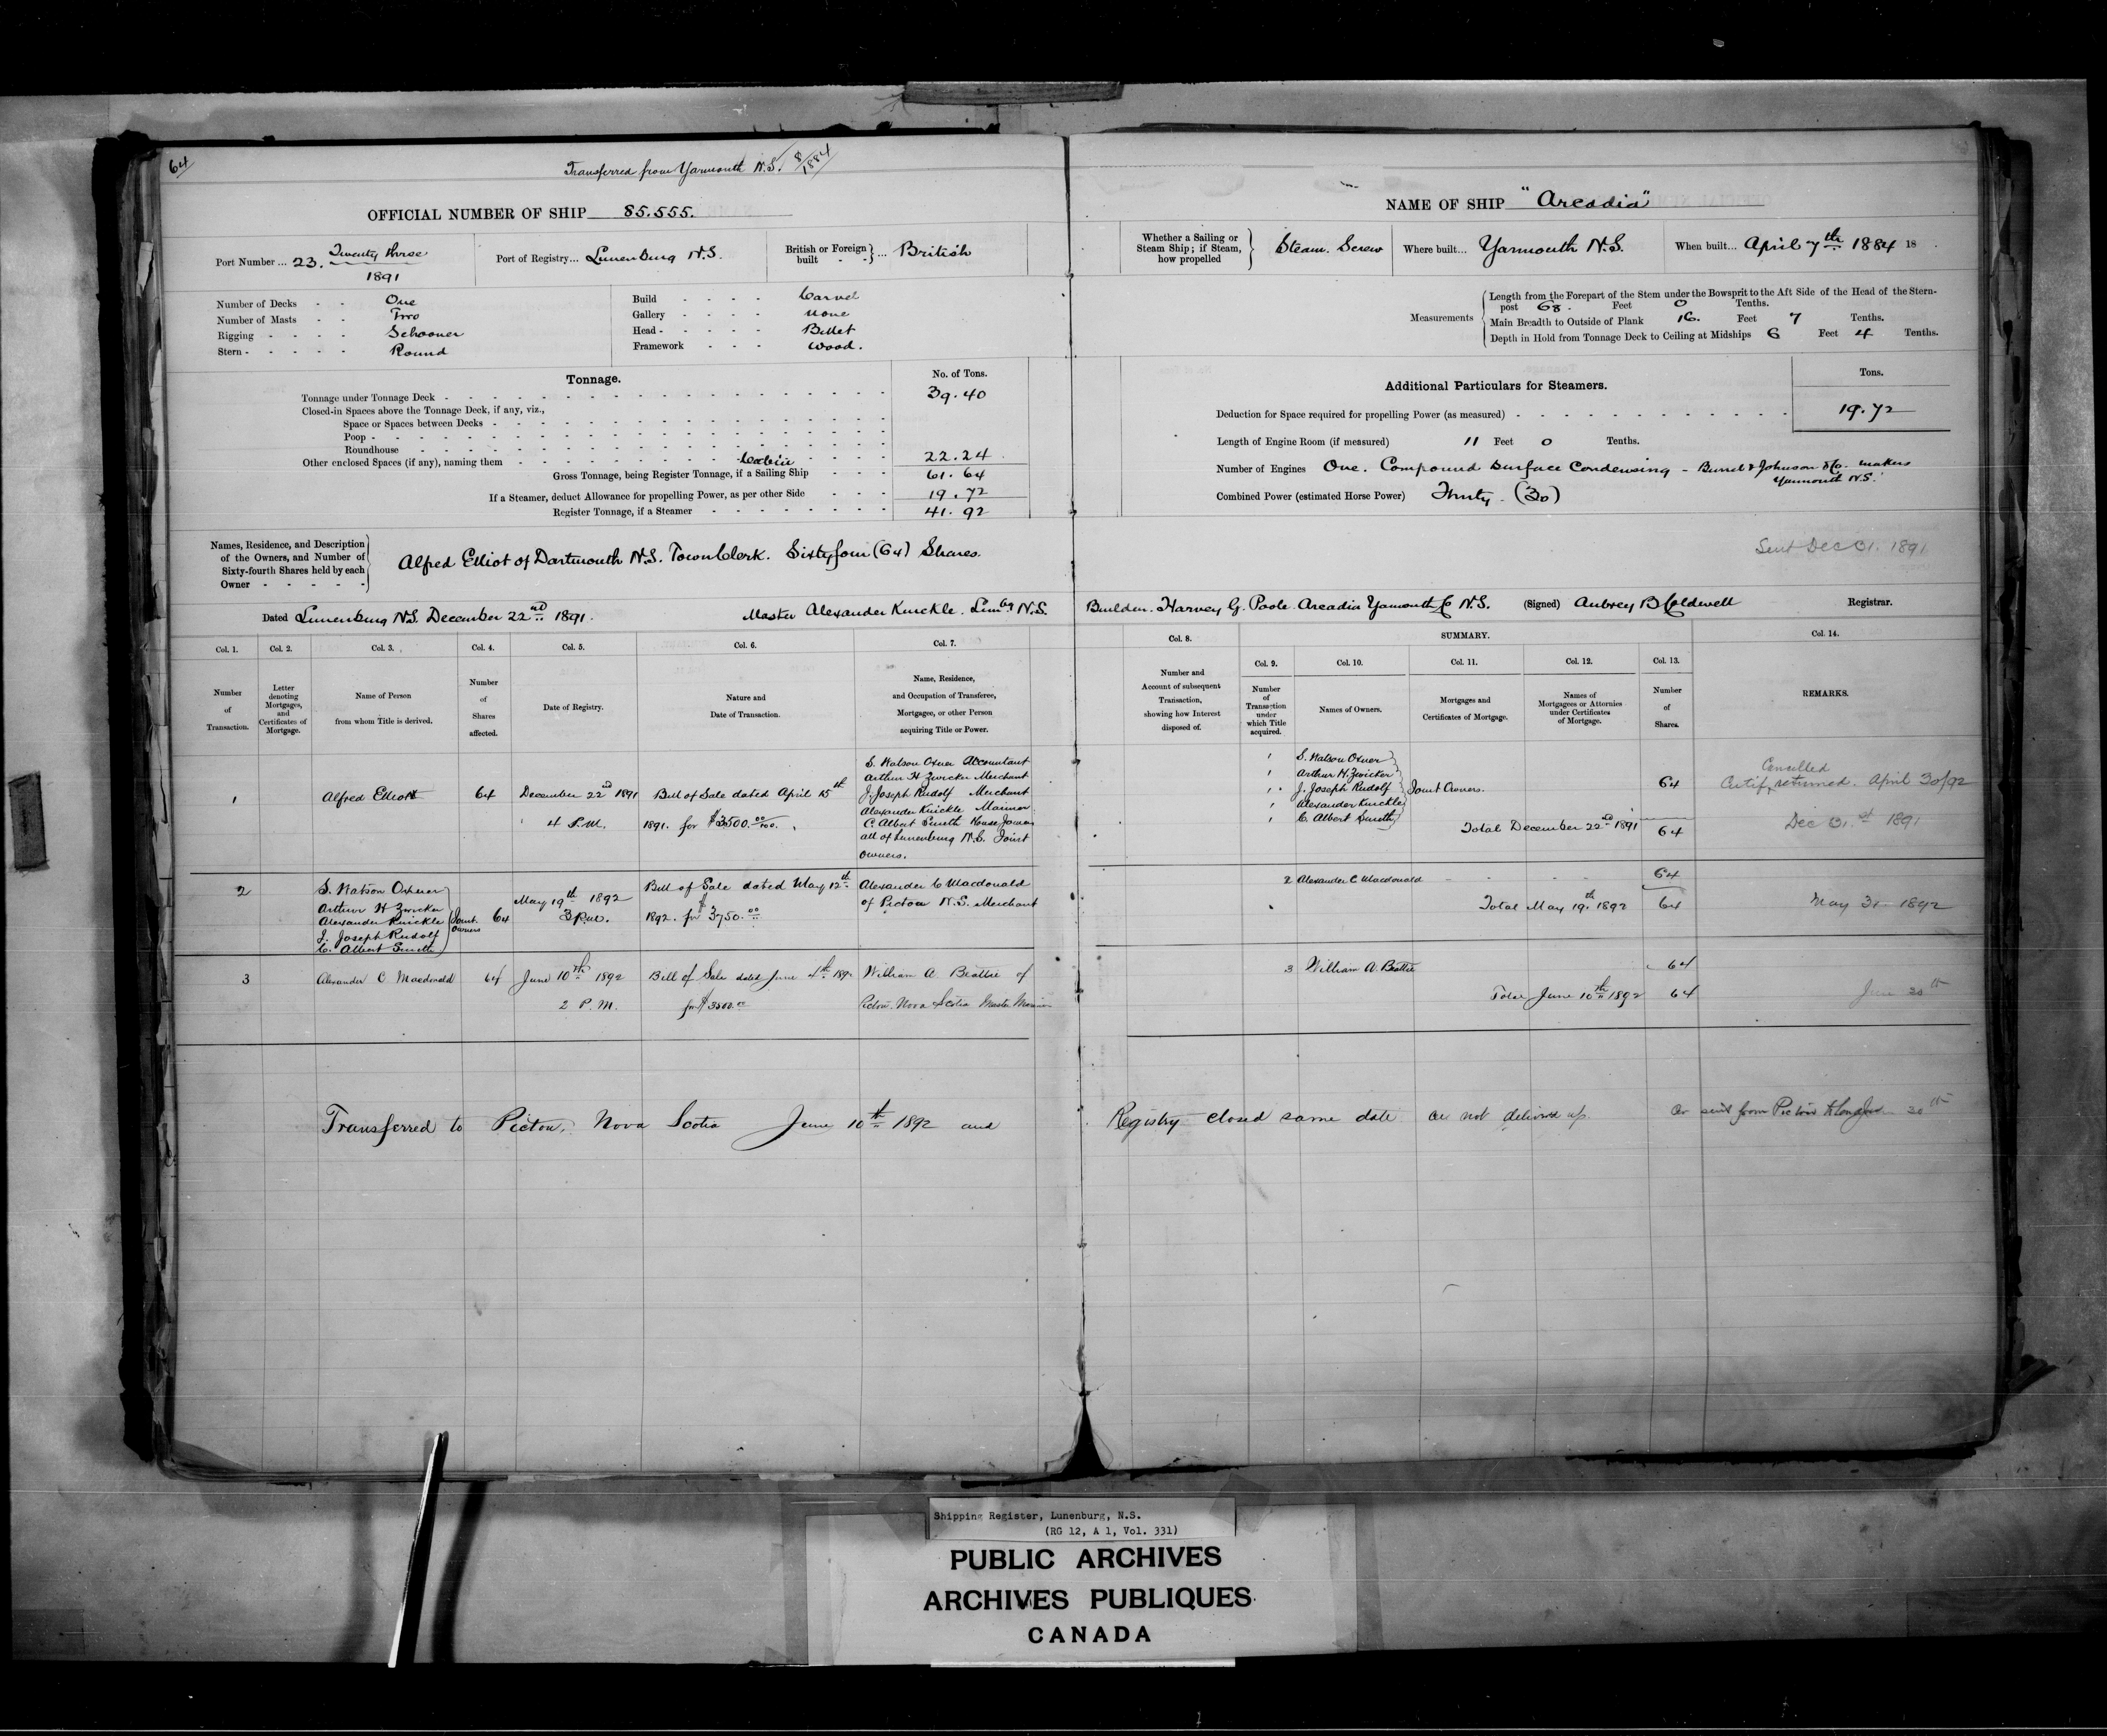 64
Transferred from Yarmouth N.S. 8/1884
OFFICIAL NUMBER OF SHIP 85.555.
Port Number ... 23. Twenty three
1891
Port of Registry... Lunenburg N.S.
British or Foreign built - - } ... British
Number of Decks - - One
Number of Masts - - Two
Rigging - - - - Schooner
Stern - - - - - Round
Build - - - - Carvel
Gallery - - - - none
Head - - - - - Billet
Framework - - - Wood.
Tonnage.
No. of Tons.
Tonnage under Tonnage Deck - 39.40
Closed-in Spaces above the Tonnage Deck, if any, viz.,
Space or Spaces between Decks -
Poop -
Roundhouse -
Other enclosed Spaces (if any), naming them - Cabin - 22.24
Gross Tonnage, being Register Tonnage, if a Sailing Ship - - - 61.64
If a Steamer, deduct Allowance for propelling Power, as per other Side - - - 19.72
Register Tonnage, if a Steamer - 41.92
Names, Residence, and Description
of the Owners, and Number of
Sixty-fourth Shares held by each
Owner - - - - -
Alfred Elliot of Dartmouth N.S. Town Clerk. Sixty four (64) Shares.
Dated Lunenburg N.S. December 22nd 1891. Master Alexander Knickle. Lunbg N.S.
Col. 1. Col. 2. Col. 3. Col. 4. Col. 5. Col. 6. Col. 7.
Number of Transaction.
Letter denoting Mortgages, and Certificates of Mortgage.
Name of Person from whom Title is derived.
Number of Shares affected.
Date of Registry.
Nature and Date of Transaction.
Name, Residence, and Occupation of Transferee, Mortgagee, or other Person acquiring Title or Power.
1 Alfred Elliott 64 December 22nd 1891 4 P.M. Bill of Sale dated April 15th 1891. for $3500.00/100.
S. Watson Oxner Accountant
Arthur H Zwicker Merchant
J. Joseph Rudolf Merchant
Alexander Knickle Mariner
C. Albert Smith House Joiner
all of Lunenburg N.S. Joint
Owners.
2 S. Watson Oxner
Arthur H Zwicker
Alexander Knickle
J. Joseph Rudolf
C. Albert Smith
Joint Owners 64 May 19th 1892 3 P.M. Bill of Sale dated May 12th 1892. for $3750.00
Alexander C Macdonald
of Pictou N.S. Merchant
3 Alexander C Macdonald 64 June 10th 1892 2 P.M. Bill of Sale dated June 4th 1892 for $3500.00
William A Beattie of
Pictou Nova Scotia Master Mariner
Transferred to Pictou, Nova Scotia June 10th 1892 and
NAME OF SHIP "Arcadia"
Whether a Sailing or
Steam Ship; if Steam,
how propelled
Steam. Screw
Where built... Yarmouth N.S.
When built... April 7th 1884 18
Measurements
Length from the Forepart of the Stem under the Bowsprit to the Aft Side of the Head of the Stern-
post 68. Feet 0 Tenths.
Main Breadth to Outside of Plank 16. Feet 7 Tenths.
Depth in Hold from Tonnage Deck to Ceiling at Midships 6 Feet 4 Tenths.
Additional Particulars for Steamers.
Tons.
Deduction for Space required for propelling Power (as measured) - 19.72
Length of Engine Room (if measured) 11 Feet 0 Tenths.
Number of Engines One. Compound Surface Condensing - Burrel & Johnson & Co. makers
Yarmouth N.S.
Combined Power (estimated Horse Power) Thirty - (30)
Sent Dec 31. 1891
Builder. Harvey G. Poole. Arcadia Yarmouth Co N.S. (Signed) Aubrey B Caldwell Registrar.
Col. 8. SUMMARY. Col. 14.
Col. 9. Col. 10. Col. 11. Col. 12. Col. 13.
Number and Account of subsequent Transaction, showing how Interest disposed of.
Number of Transaction under which Title acquired.
Names of Owners.
Mortgages and Certificates of Mortgage.
Names of Mortgagees or Attornies under Certificates of Mortgage.
Number of Shares.
REMARKS.
1 S. Watson Oxner
1 Arthur H. Zwicker
1 J. Joseph Rudolf
1 Alexander Knickle
1 C. Albert Smith
Joint Owners. 64
Total December 22nd 1891 64
Cancelled
Certif. returned. April 30/92
Dec 31.st 1891
2 Alexander C Macdonald - - - 64
Total May 19th 1892 64
May 31 1892
3 William A. Beattie 64
Total June 10th 1892 64
June 20th
Registry closed same date Cr not delivered up Cr sent from Pictou to London 20th
Shipping Register, Lunenburg, N.S.
(RG 12, A 1, Vol. 331)
PUBLIC ARCHIVES
ARCHIVES PUBLIQUES
CANADA